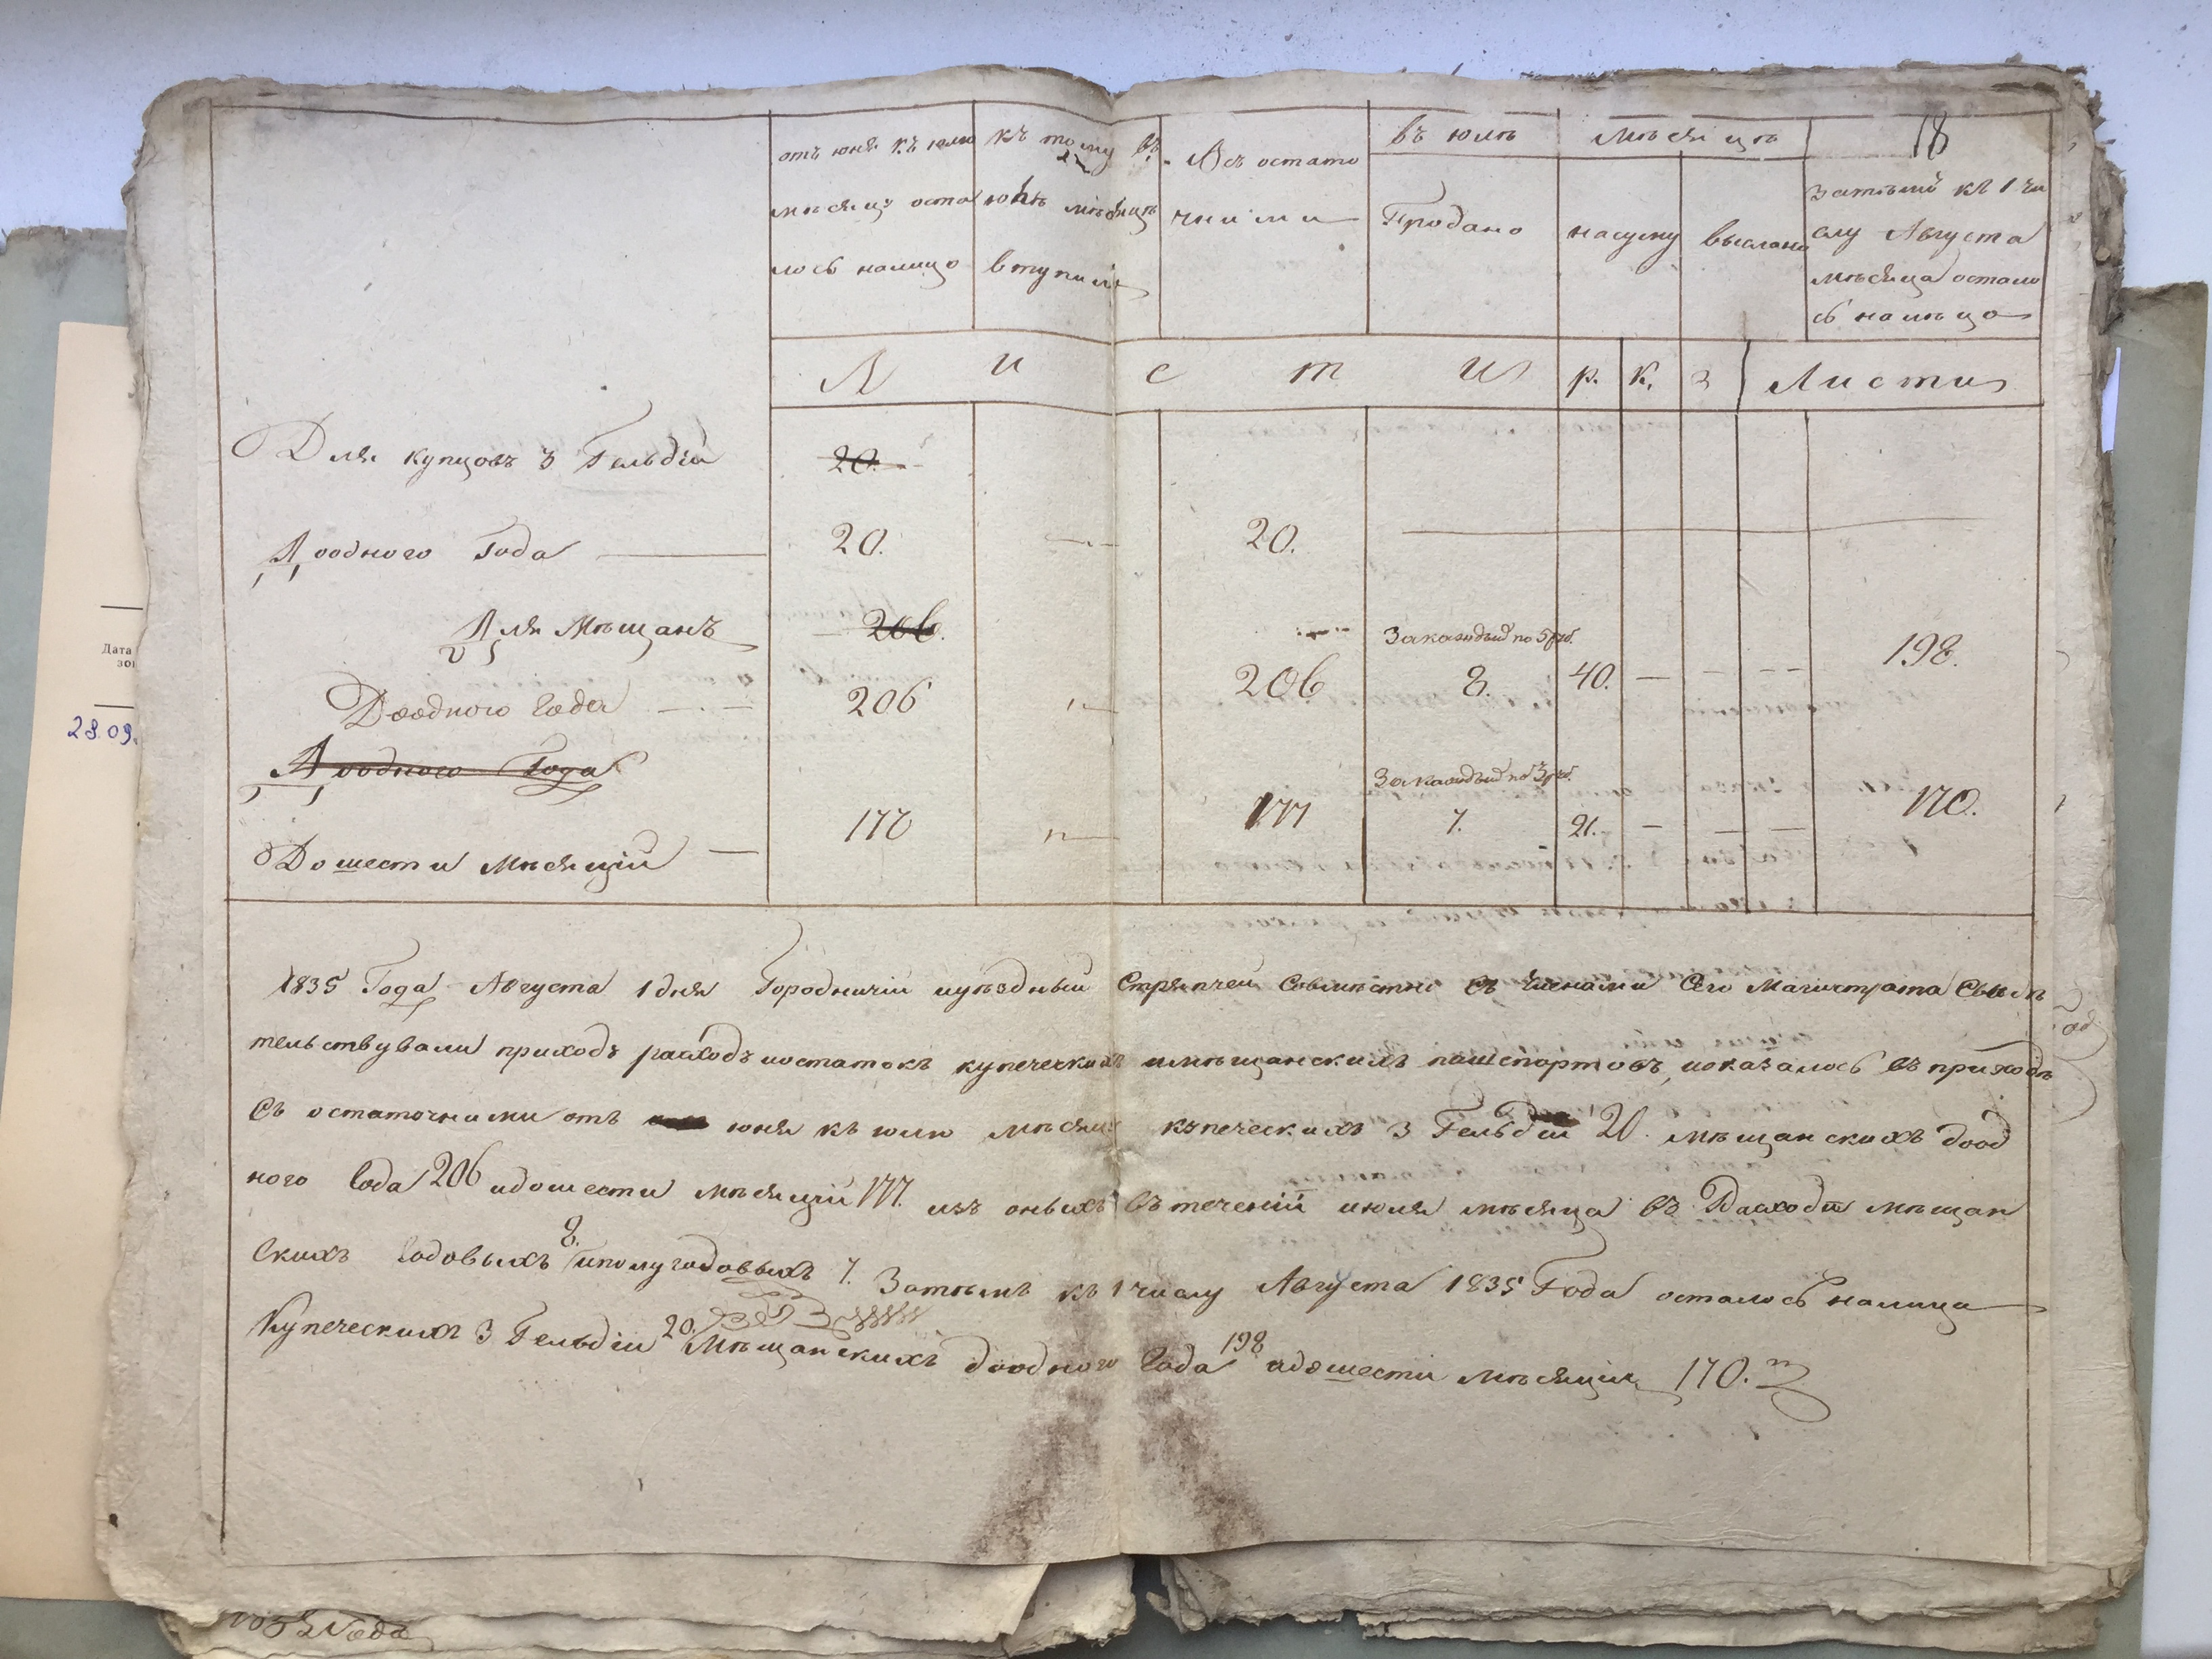 18
отъ юня къ юлю
мѣсяцъ оста
лось налицо
къ тому въ
юлѣ мѣсяцѣ
вступило
Всѣ остато
чними
въ юлѣ мѣсяцѣ
Продано
на суму
выслано
Затѣмъ къ 1 чи
слу Августа
мѣсяца остало
сь налицо
Л и с т и р. к. Листи
Для купцовъ 3 Гельдіи 20.
До одного Года 20. 20.
Для Мѣщанъ 206. За каждый по 5 руб.
До одного Года 206 206 8. 40. — — — 198.
До одного Года
За каждый по 3 руб.
До шести Мѣсяцій — 177 177 7. 21. — — — 170.
1835 Года Августа 1 дня Городничій иуѣздный Стряпчей Совмѣстно съ Членами Сего Магистрата Свыдѣ
тельствували приходъ расходъ иостатокъ купеческихъ имѣщанскихъ пашпортовъ, иоказалось въ приходѣ
Съ остаточними отъ юня къ юлю мѣсяцъ купеческихъ 3 Гельдіи 20. мѣщанскихъ доод
ного Года 206 идошести мѣсяцій 177. изъ оныхъ въ теченіи июля мѣсяца въ Расходѣ мѣщан
скихъ Годовыхъ 8. иполугодовыхъ 7. Затѣмъ къ 1 числу Августа 1835 Года осталось налицо
Купеческихъ 3 Гельдіи 20. Мѣщанскихъ доодного Года 198 идошести мѣсяцій 170.
Дата
28.09.
Года